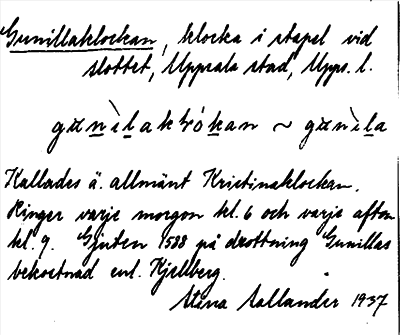 Gunillaklockan, klocka i stapel vid
slottet, Uppsala stad, Upps. l.
gɯnìlakló​kan ~ gɯnìla
Kallades ä. allmänt Kristinaklockan.
Ringer varje morgon kl. 6 och varje afton
kl. 9. Gjuten 1588 på drottning Gunillas
bekostnad enl. Kjellberg.
Stina Sallander 1937